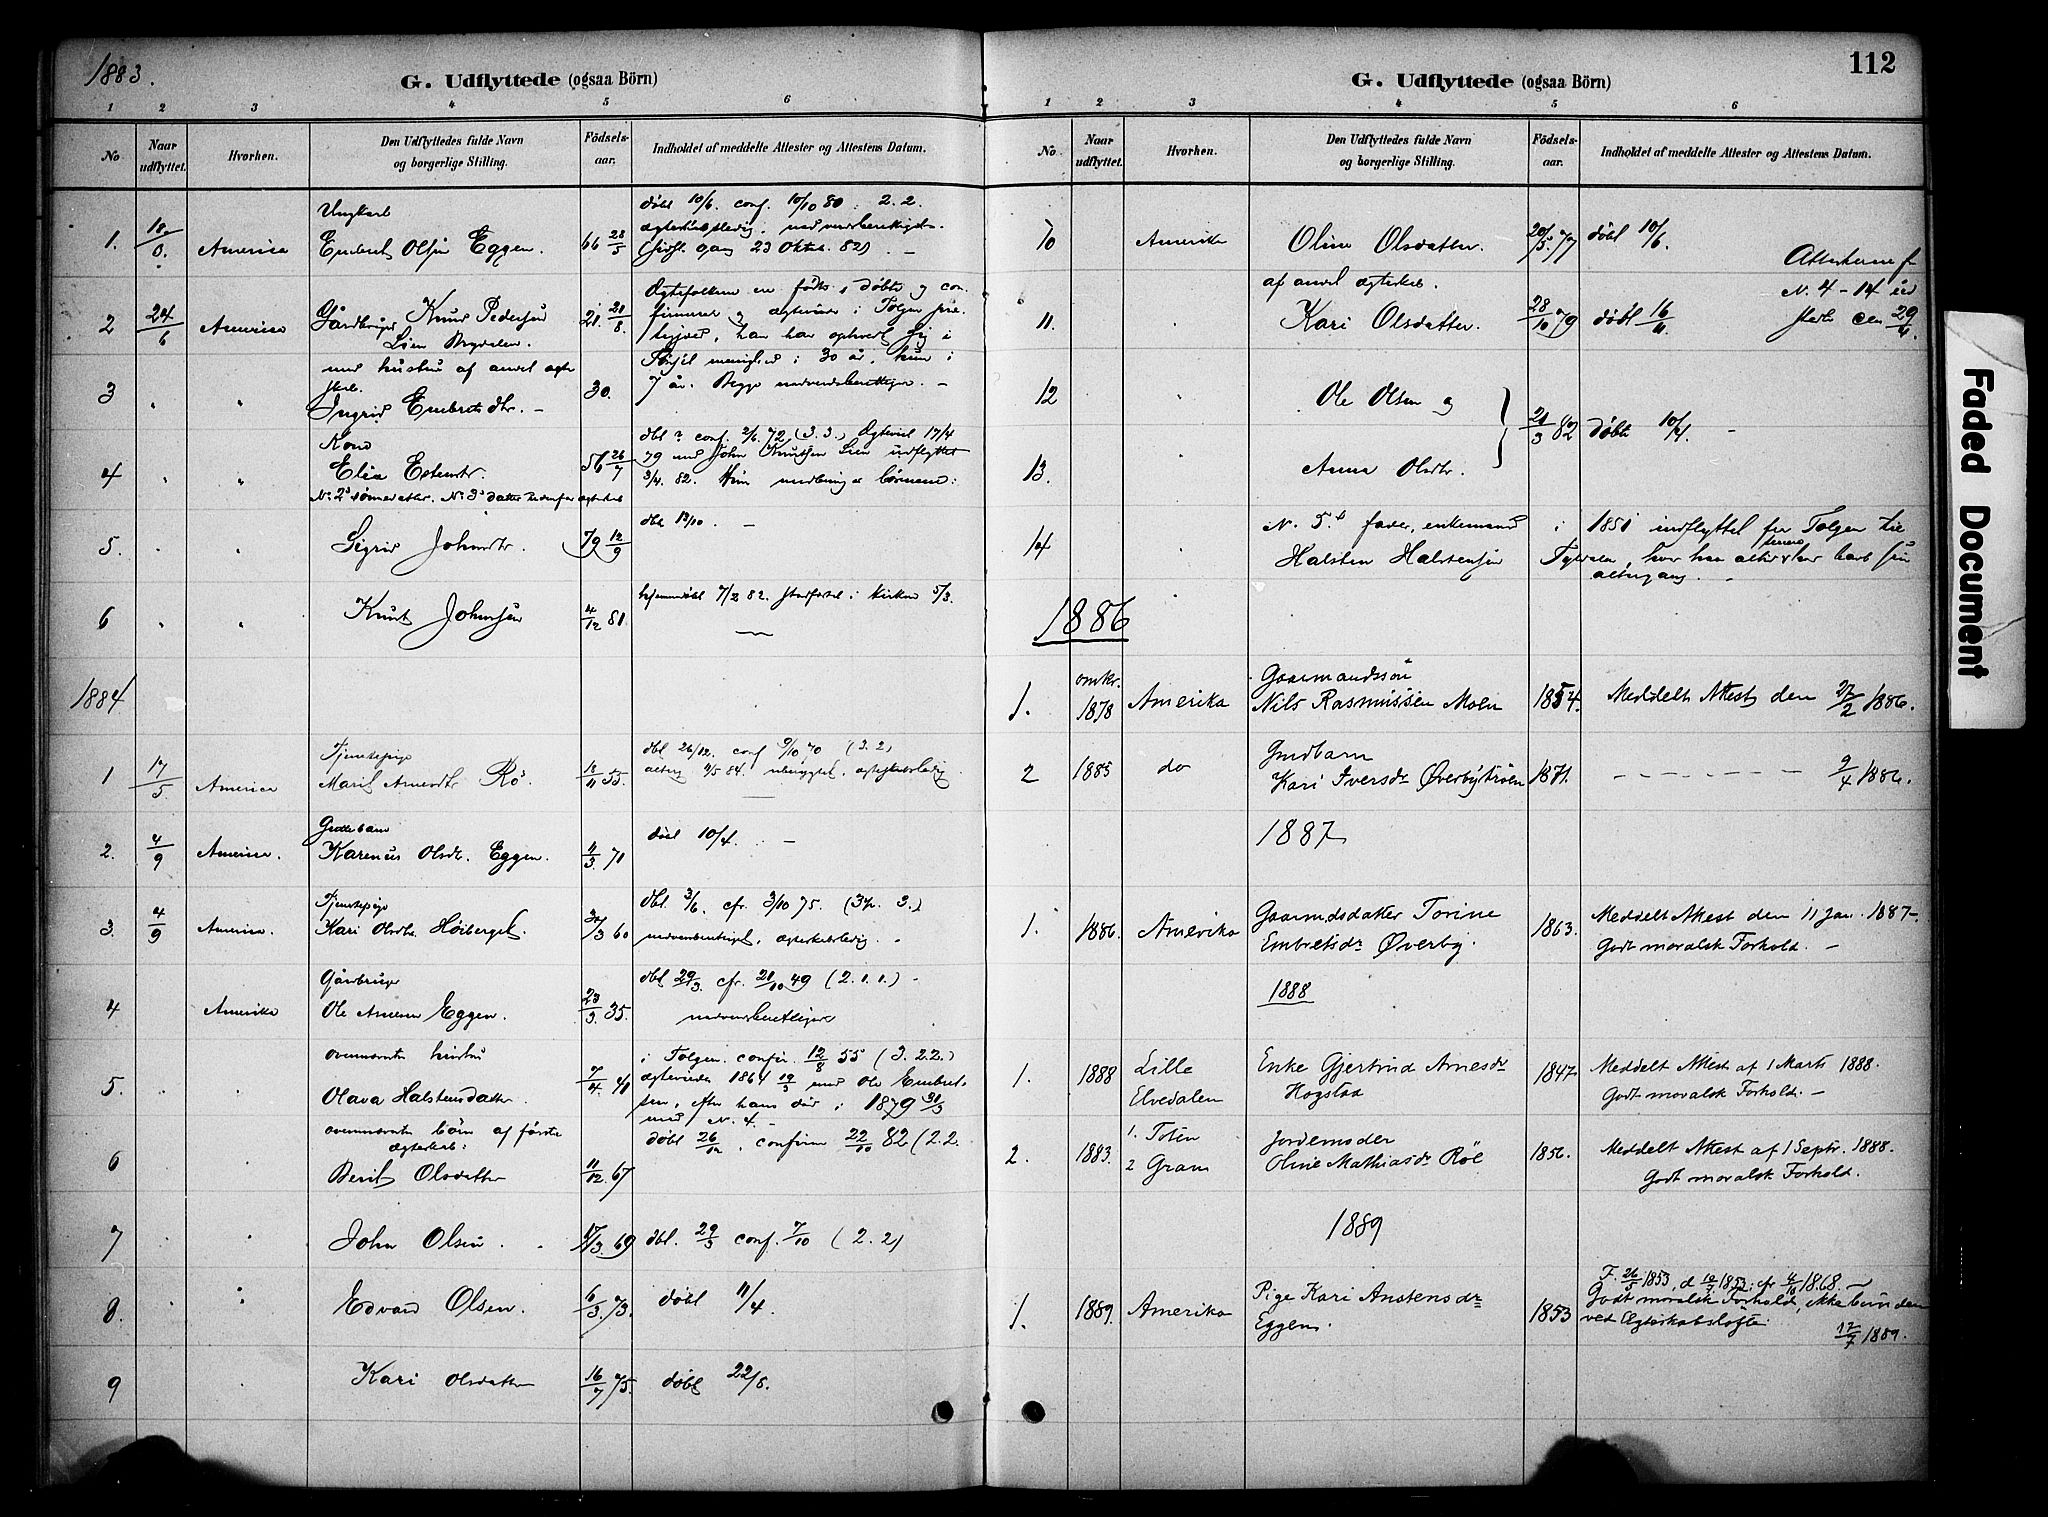 1883.
G. Udflyttede (ogsaa Börn)
1 2 3 4 5 6
No
Naar udflyttet.
Hvorhen.
Den Udflyttedes fulde Navn og borgerlige Stilling.
Födsels-aar.
Indholdet af meddelte Attester og Attestens Datum.
Ungkarl
döbt 10/6. conf. 10/10 80 : 2.2.
1. America Embret Olsen Eggen. 66 28/5
23 Oktob. 82)
2 24/6 America Gårdbruger Knud Pedersen 21 21/8
Lien
med hustru af andet ægteskab.
3 " " Ingrid Embretsdtr. 30.
7 år. Begge
Kone
4 " " Elia Estensdtr. 56 26/7
conf. 2/6. 72 (3.3.) 17/4
79 med John Knutsen Lien udflyttet
3/4. 82.
5. " " Sigrid Johnsdtr. 79 12/9 dbt 12/10. —
6 " " Knut Johnsen 4/12 81 hjemmedöbt 7/2 82. Stadfæstet i Kirken 5/3.
1884
Tjenestepige
dbt 26/12. conf 9/10 70 (3.2)
1 17/5 America Marit Arnesdtr Rö. 55.
2. 4/9 America. Karenus Olsdt. Eggen. 11/3 71 döbt 10/4. —
Tjenestepige
dbl. 3/6. cfr. 3/10 75.
3. 4/9 America. Kari Olsdtr. Höiberget. 60
Gårdbruger
dbl 29/3. cfr. 21/10 49 (2.1.1.) -
4 Amerika Ole Arnesen Eggen. 23/3. 35.
ovennævnte hustru
i Tolgen. confir. 12/8 55 (3.2.2.)
5. " " Olava Halstensdatter. 7/4 41
1864 19/3 med Ole Embret-
sen, efter hans död i 1879 31/3
med N. 4. -
ovennævnte börn af förste ægteskab:
6 Berit Olsdatter 11/12. 67 döbt 26/12, confirm 22/10 82 (2.2.
7 John Olsen. 17/3. 69 dbl. 29/3 conf. 7/10 (2.2)
8. " Edvard Olsen. 6/3. 73. döbt 11/4
9 Kari Olsdatter 16/7 75. döbt 22/8.
112
G. Udflyttede (ogsaa Börn)
1 2 3 4 5 6
No.
Naar udflyttet.
Hvorhen.
Den Udflyttedes fulde Navn og borgerlige Stilling.
Födsels-aar.
Indholdet af meddelte Attester og Attestens Datum.
10 Amerika Oline Olsdatter. 20/5. 77 döbt 10/6.
Attesterne f
N. 4 - 14
29
af andet ægteskab.
11. " Kari Olsdatter. 28/10 79 döbt 16/11
12 " Ole Olsen og
21/3 82 döbte 10/4. -
13. " Anna Olsdtr.
N. 5's fader, enkemand i 1851 indflyttet fra Tolgen til
14 " Halsten Halstensen Tylldalen, hvor han
altergang.
1886
1. omkr. 1878 Amerika Gaarmandssön Nils Rasmussen Moen 1854. Meddelt Attest den 27/2 1886.
2 1885 do Kari Iversdr Överbytröen 1871. - - - - - - - 9/4 1886.
1887
1. 1886. Amerika Gaarmdsdatter Torine Embretsdr Överby. 1863. Meddelt Attest den 11 Jan. 1887-
Godt moralsk Forhold. —
1888
1. 1888 Lille Elvedalen Enke Gjertrud Arnesdr Hogstad 1847. Meddelt Attest af 1 Marts 1888.
Godt moralsk Forhold. —
2. 1883. 1. Toten 2 Gram Jordemoder Oline Mathiasdr Röe 1856. Meddelt Attest af 1 Septr. 1888.
Godt moralsk Forhold.
1889
F. 26/5 1853 d 10/7 1853. cfr 4/10 1868.
1. 1889. Amerika Pige Kari Anstensdr Eggen. 1853 Godt moralsk Forhold, ikke bunden
ved Ægteskabslöfte 17/7 1889.
Faded Document